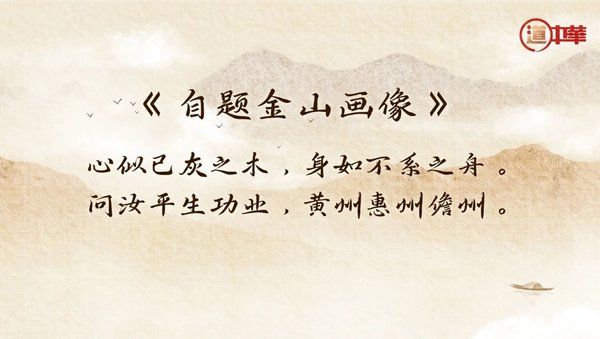 道中華
《自题金山画像》
心似已灰之木，身如不系之舟。
问汝平生功业，黄州惠州儋州。